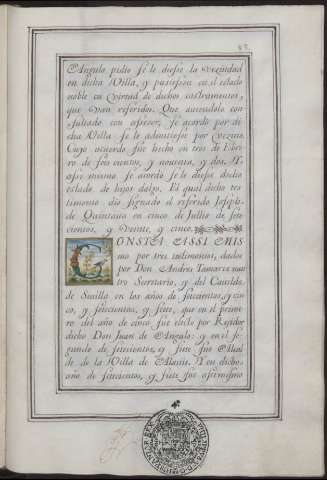 87.
Angulo pidio se le diesse la vezindad
en dicha Villa, y possesion en el estado
noble en virtud de dichos instrumentos,
que van referidos. Que aviendolo con
sultado con assesor, se acordó por di
cha Villa se le admitiesse por vezino.
Cuyo acuerdo fue hecho en tres de Febre
ro de seiscientos, y noventa, y dos. Y
assi mismo se acordo se le diesse dicho
estado de hijos dalgo. El qual dicho tes
timonio dio signado el referido Joseph
de Quintana en cinco de Jullio de sete
cientos, y veinte, y cinco.
CONSTA ASSI MIS
mo por tres testimonios, dados
por Don Andres Tamariz nues
tro Secretario, y del Cavildo
de Sevilla en los años de seiscientos, y cin
co, y seiscientos, y siete, que en el prime
ro del año de cinco fue electo por Regidor
dicho Don Juan de Angulo: y en el se
gundo de seiscientos, y siete fue Alcal
de de la Villa de Alanis. Y en dicho
año de seiscientos, y siete fue assimismo